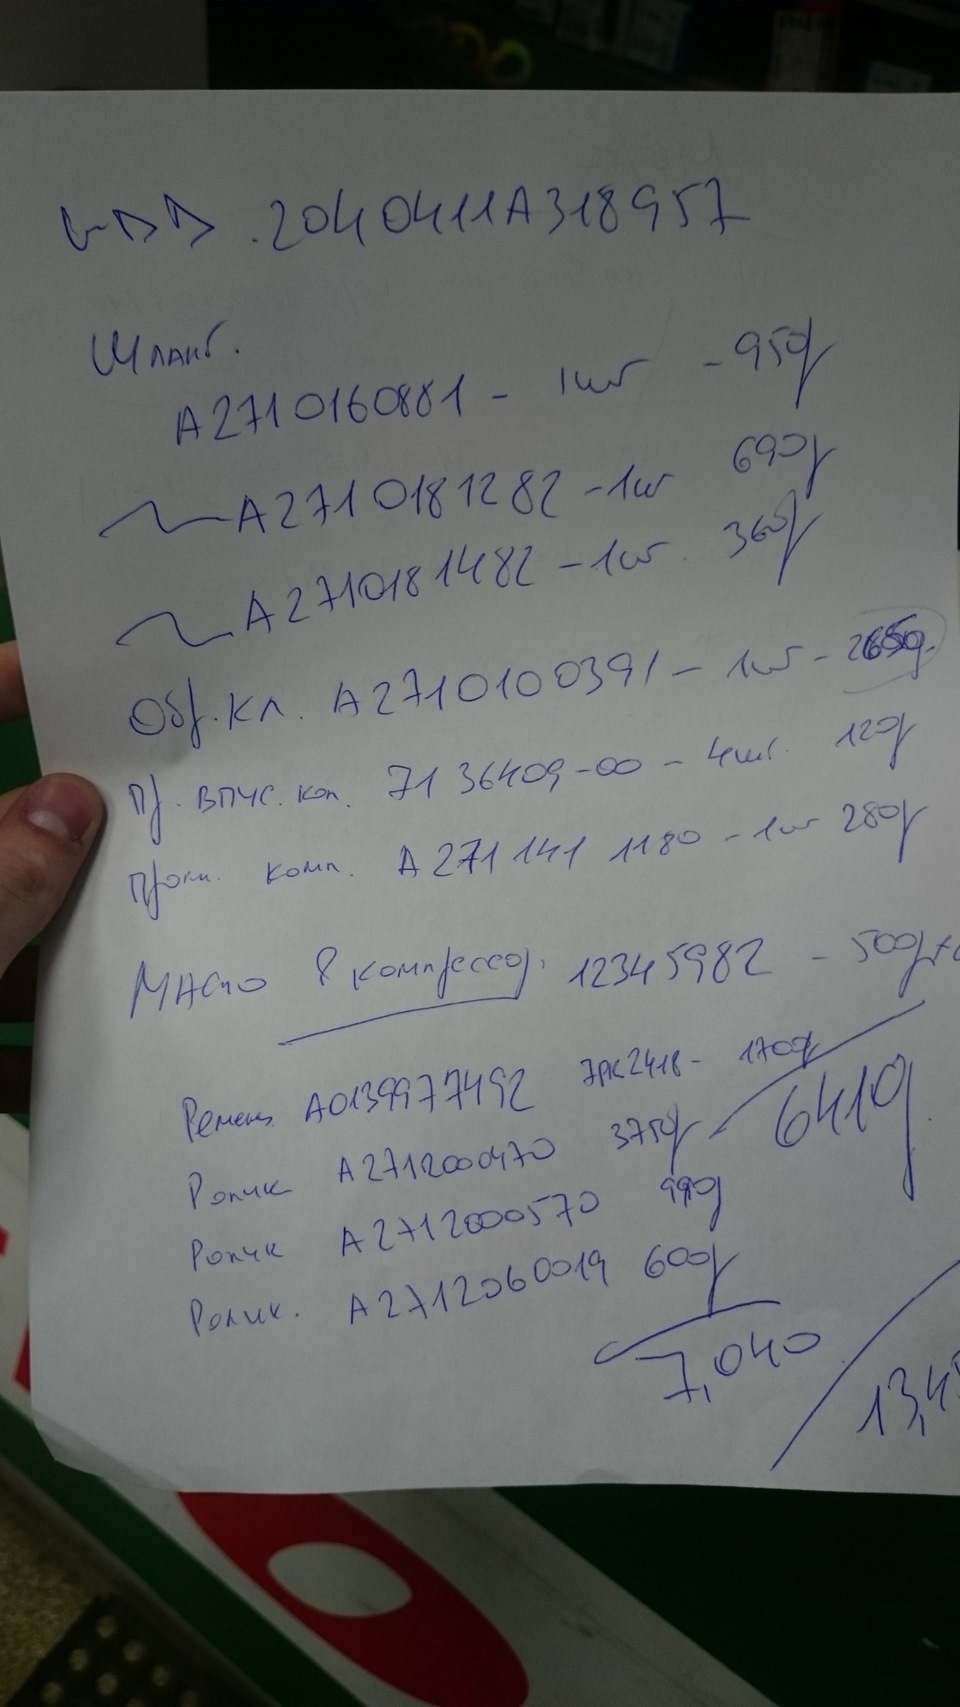 WDD 2040411A318957
Шланг.
A2710160881 - 1шт - 950р
A2710181282 - 1шт 690р
A2710181482 - 1шт. 360р
Обр. кл. A2710100391 - 1шт - 2650р.
Пр. впус. кол. 71 36409-00 - 4шт. 120р
Прокл. комп. A 271 141 1180 - 1шт 280р
Масло в компрессор. 12345982 - 500р
Ремень A0139977492 7PK2418 - 1700р
6410р.
Ролик A2712000470 3750р
Ролик A2712000570 990р
Ролик. A2712060019 600р
7,040
13,4